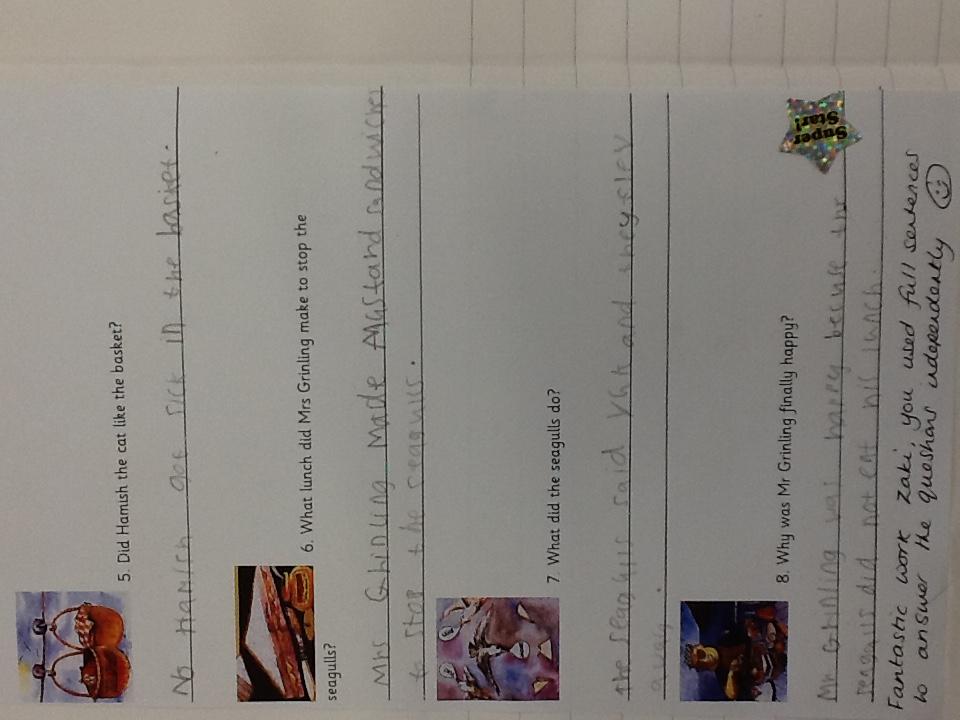 5. Did Hamish the cat like the basket?
No Hamish got sick in the basket.
6. What lunch did Mrs Grinling make to stop the
seagulls?
Mrs Grinling Made Mustard sandwiches
to stop the seagulls.
7. What did the seagulls do?
the seagulls said yhk and they fley
away.
8. Why was Mr Grinling finally happy?
Super
Star!
Mr Grinling was happy becuse the
seagulls did not eat his lunch.
Fantastic work Zaki, you used full sentences
to answer the questions independently